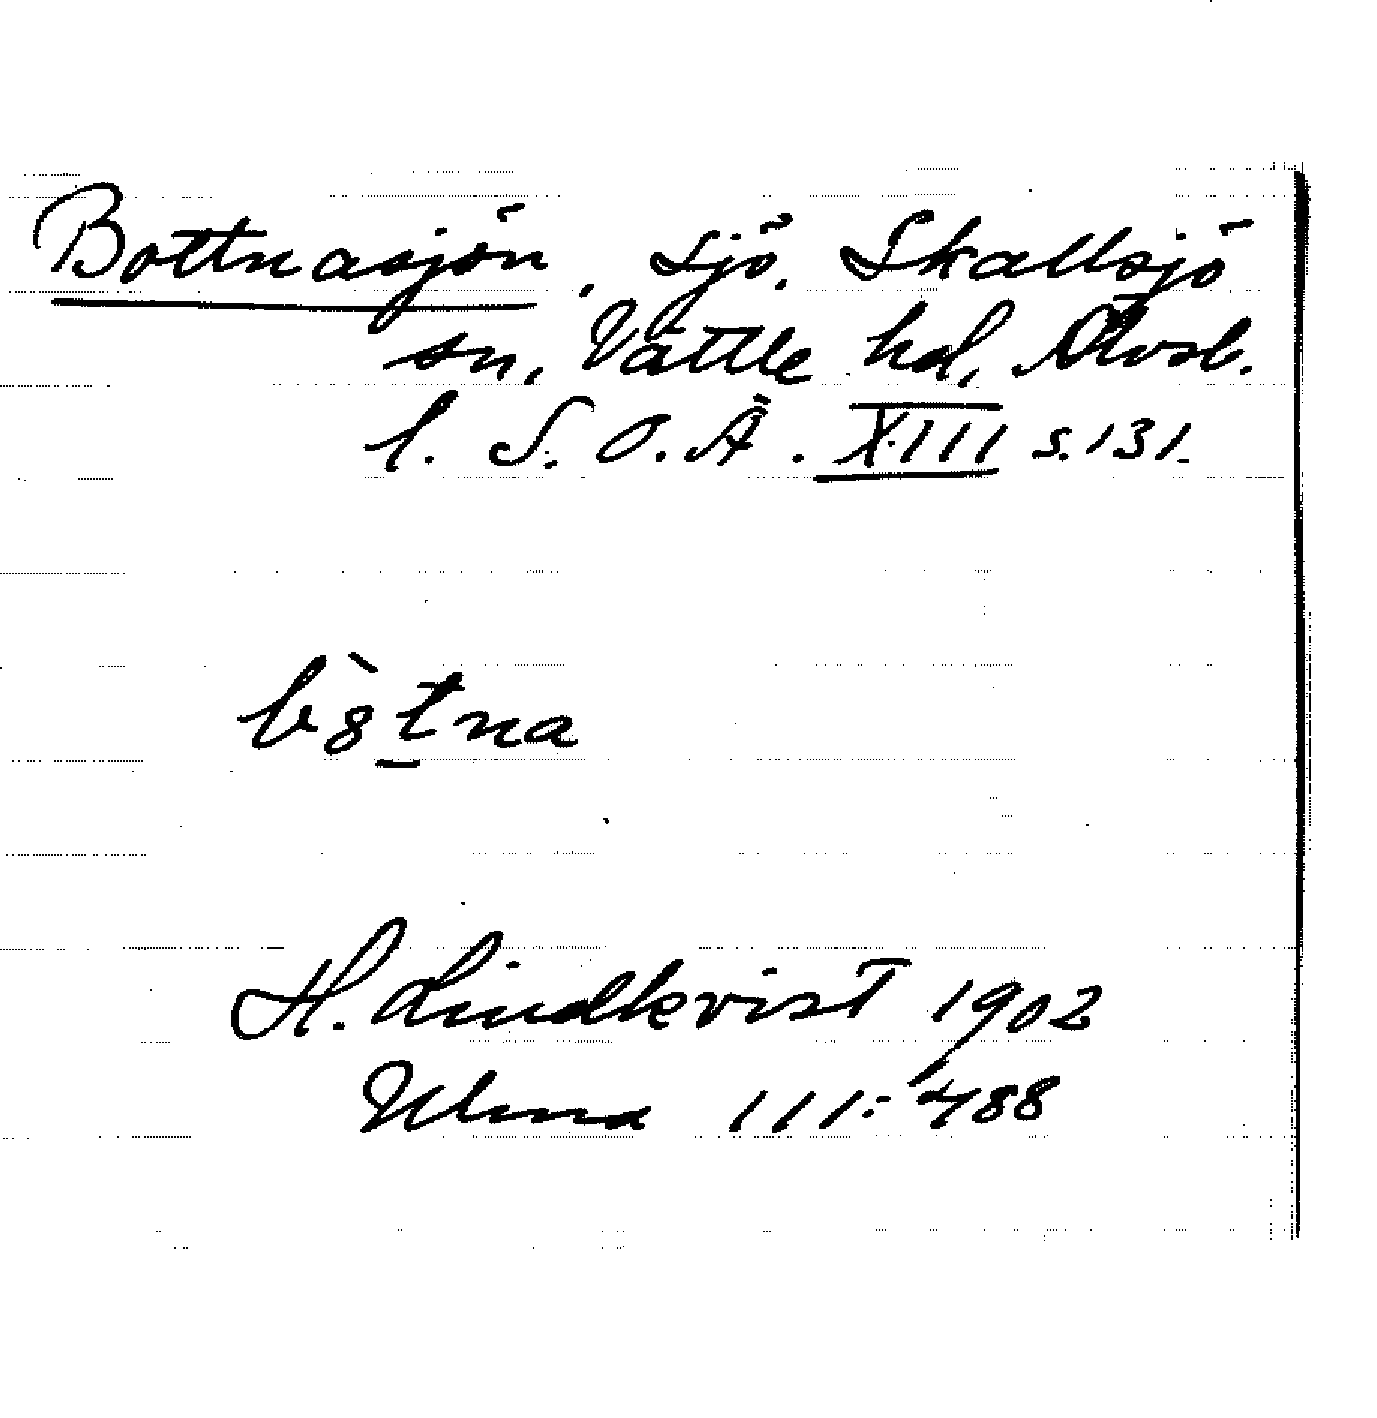 Bottnasjön, sjö, Skallsjö
sn, Vättle hd, Älvsb.
l. S.O.Ä. XIII s.131.
bòtna
H. Lindkvist 1902
Ulma 111:488